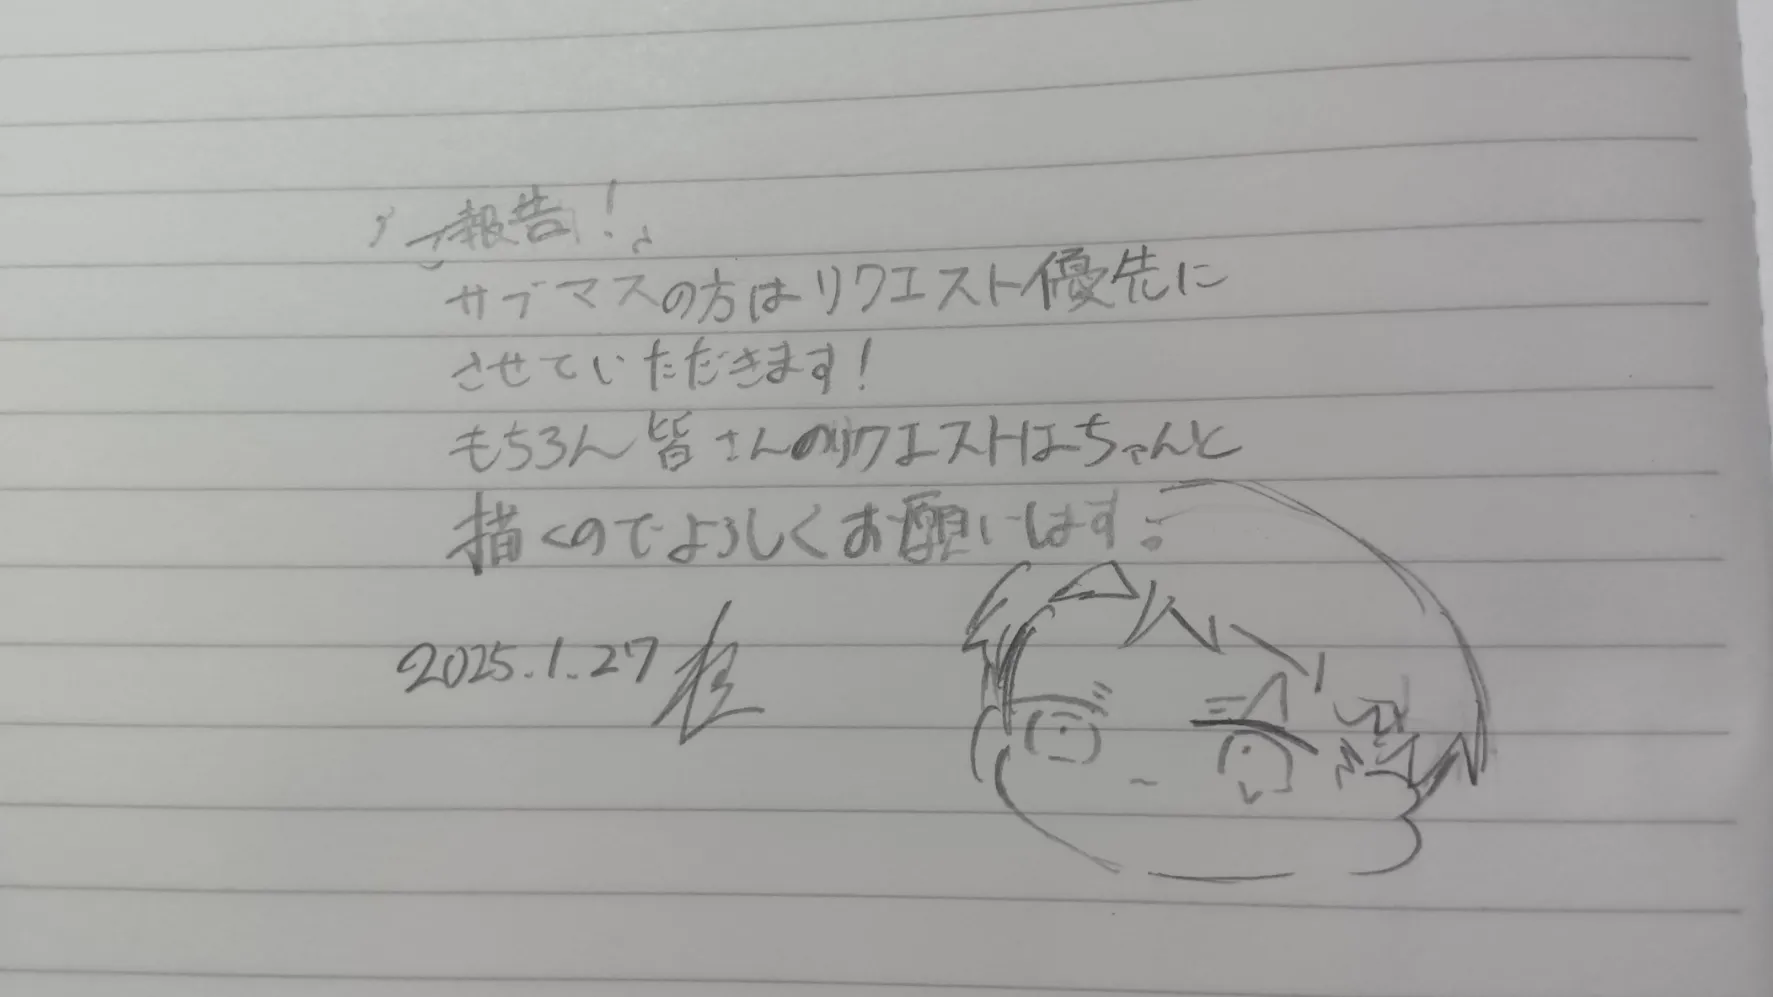 ご報告！
サブマスの方はリクエスト優先に
させていただきます！
もちろん皆さんのリクエストはちゃんと
描くのでよろしくお願いします！
2025.1.27